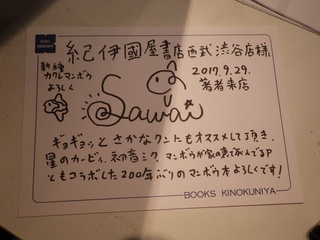 紀伊國屋書店西武渋谷店様
新種
カクレマンボウ
よろしく
2017.9.29.
著者来店
Sawai
ギョギョッと さかなクンにもオススメして頂き、
星のカービィ、初音ミク、マンボウが家の裏で死んでるP
ともコラボした200年ぶりのマンボウ本よろしくです!
BOOKS KINOKUNIYA